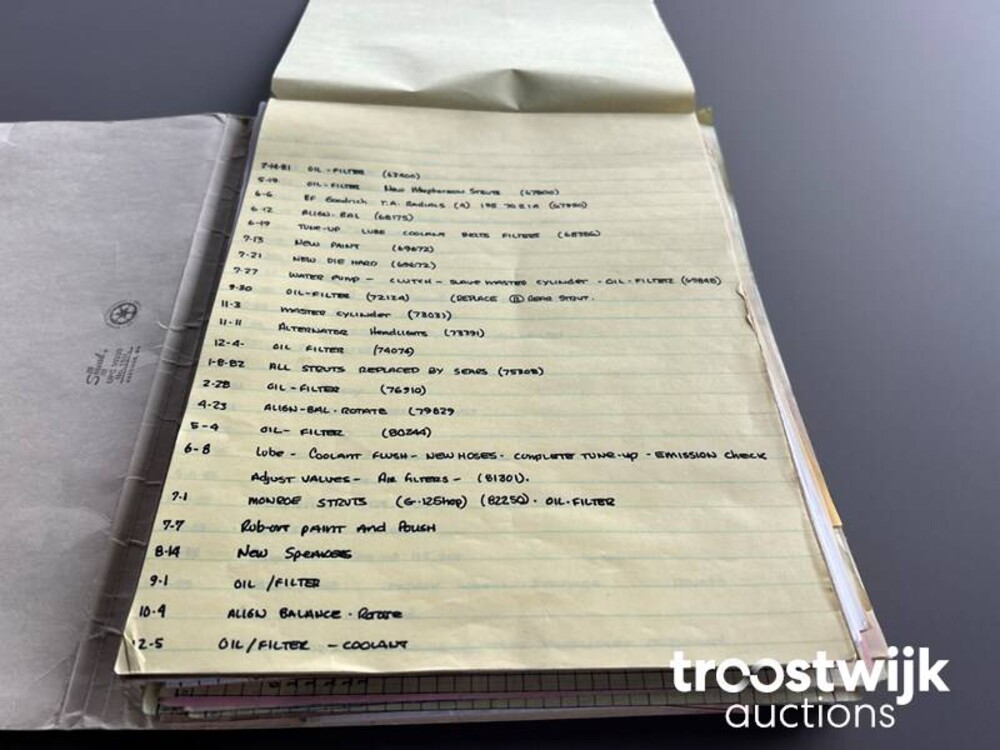 OIL-FILTER
5-19 OIL-FILTER New Mcpherson Struts
6-6 BF Goodrich T.A. Radials (4) 195 70
6-12 ALIGN-BAL (68175)
6-19 TUNE-UP LUBE COOLANT BELTS FILTERS
7-13 NEW PAINT (69672)
7-21 NEW DIE HARD (69672)
7-27 WATER PUMP - CLUTCH - SLAVE MASTER CYLINDER - OIL-FILTER (69848)
9-30 OIL-FILTER (72124) (REPLACE REAR STRUT.
11-3 MASTER CYLINDER (73031)
11-11 ALTERNATOR Headlights (73391)
12-4- OIL FILTER (74074)
1-8-82 ALL STRUTS REPLACED BY SEARS (75308)
2-28 OIL-FILTER (76910)
4-23 ALIGN-BAL-ROTATE (79829
5-4 OIL- FILTER (80244)
6-8 Lube - COOLANT FLUSH - NEW HOSES - COMPLETE TUNE-UP - EMISSION CHECK
ADJUST VALVES - AIR FILTERS - (81301).
7-1 MONROE STRUTS (82250) - OIL-FILTER
7-7 RUB-OUT PAINT AND POLISH
8-14 NEW SPEAKERS
9-1 OIL /FILTER
10-4 ALIGN BALANCE - ROTATE
12-5 OIL/FILTER - COOLANT
troostwijk
auctions